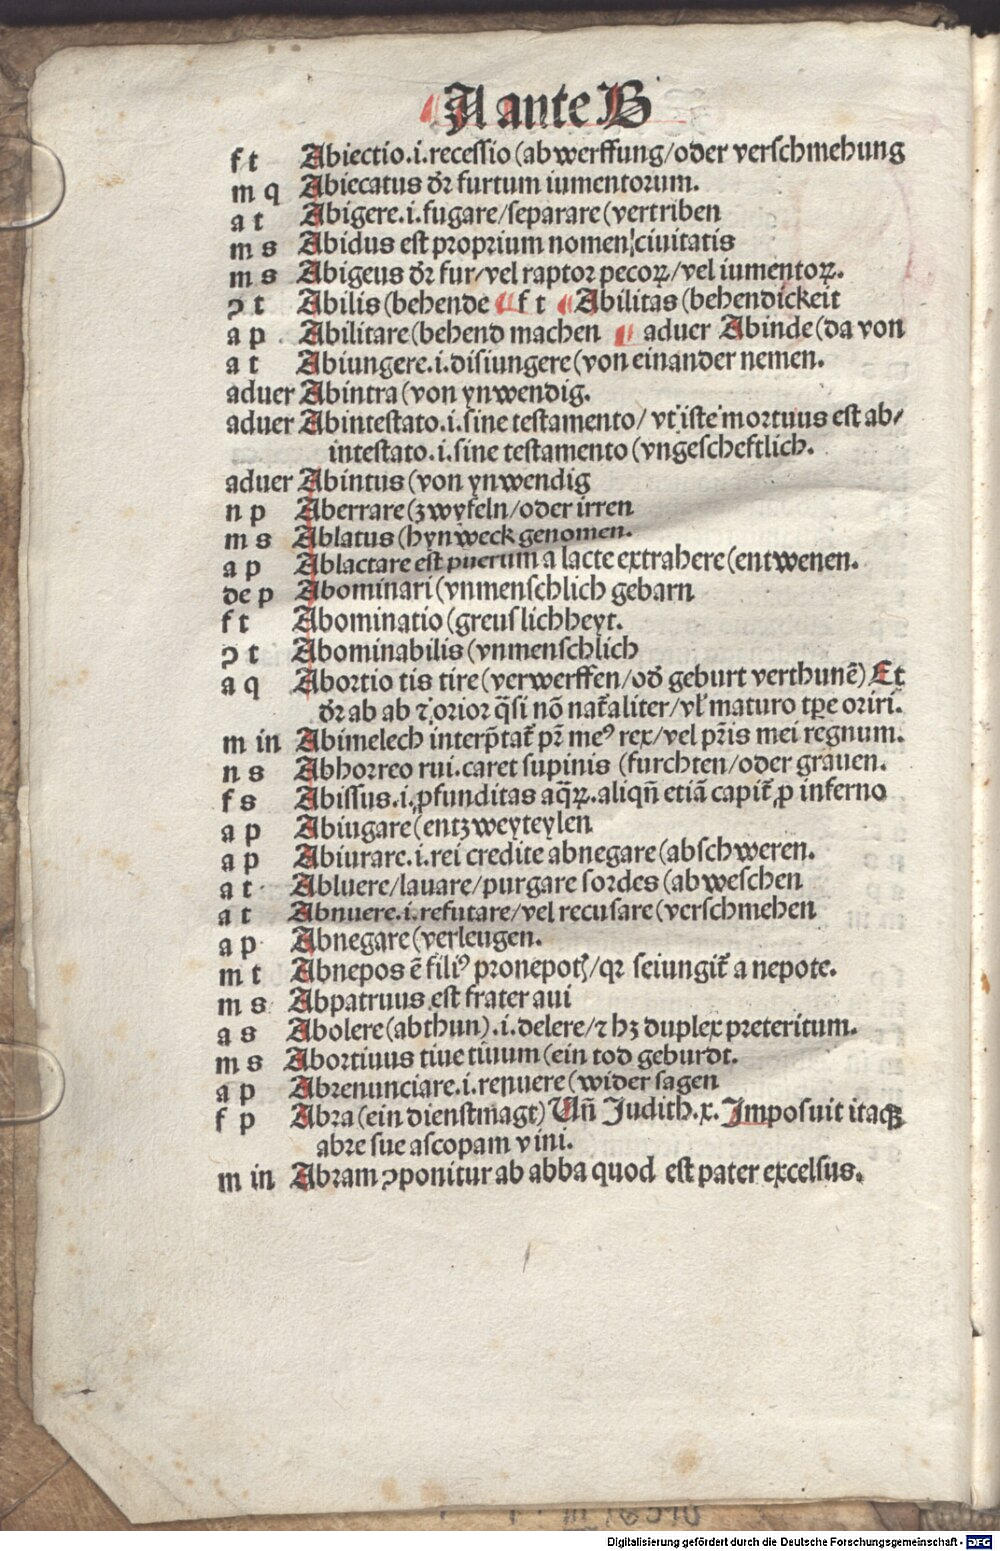 A ante B
f t Abiectio.i.recessio (abwerffung/oder verschmehung
m q Abiecatus dr̄ furtum iumentorum.
a t Abigere.i.fugare/separare (vertriben
m s Abidus est proprium nomen ciuitatis
m s Abigeus dr̄ fur/vel raptor pecoꝝ/vel iumentoꝝ.
ꝯ t Abilis (behende ¶ f t ¶ Abilitas (behendickeit
a p Abilitare (behend machen ¶ aduer Abinde (da von
a t Abiungere.i.disiungere (von einander nemen.
aduer Abintra (von ynwendig.
aduer Abintestato.i.sine testamento/ vt iste mortuus est ab/
intestato.i.sine testamento (vngescheftlich.
aduer Abintus (von ynwendig
n p Aberrare (zwyfeln/oder irren
m s Ablatus (hyn weck genomen.
a p Ablactare est puerum a lacte extrahere (entwenen.
de p Abominari (vnmenschlich gebarn
f t Abominatio (greuslichheyt.
ꝯ t Abominabilis (vnmenschlich
a q Abortio tis tire (verwerffen/od̄ geburt verthunē) Et
dr̄ ab ab ⁊ orior q̄si nō nat̄aliter/vl̓ maturo tꝑe oriri.
m in Abimelech interp̄tat̄ pr̄ meꝰ rex/vel pr̄is mei regnum.
n s Abhorreo rui.caret supinis (furchten/oder grauen.
f s Abissus.i.ꝓfunditas aq̄ꝝ.aliqn̄ etiā capit̄ ꝓ inferno
a p Abiugare (entzweyteylen
a p Abiurare.i.rei credite abnegare (abschweren.
a t Abluere/lauare/purgare sordes (abweschen
a t Abnuere.i.refutare/vel recusare (verschmehen
a p Abnegare (verleugen.
m t Abnepos ē filiꝰ pronepotꝭ/qr seiungit̄ a nepote.
m s Abpatruus est frater aui
a s Abolere (abthun).i.delere/⁊ hꝫ duplex preteritum.
m s Abortiuus tiue tiuum (ein tod geburdt.
a p Abrenunciare.i.renuere (wider sagen
f p Abra (ein dienstmagt) Un̄ Judith.x. Imposuit itaqꝫ
abre sue ascopam vini.
m in Abram ꝯponitur ab abba quod est pater excelsus.
Digitalisierung gefördert durch die Deutsche Forschungsgemeinschaft - DFG